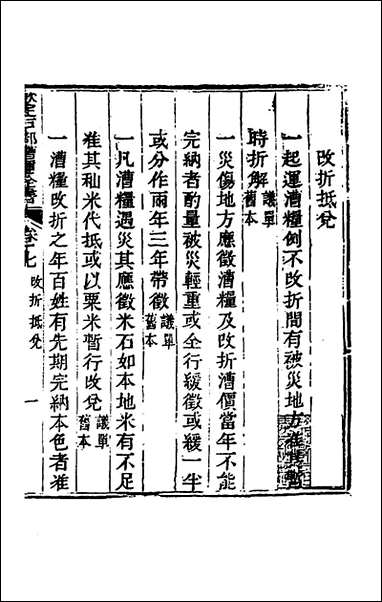 改折抵兌
一起運漕糧例不改折間有被災地方准其暫
時折解 議單舊本
一災傷地方應徵漕糧及改折漕價當年不能
完納者酌量被災輕重或全行緩徵或緩一半
或分作兩年三年帶徵 議單舊本
一凡漕糧遇災其應徵米石如本地米有不足
准其秈米代抵或以粟米暫行改兌 議單舊本
一漕糧改折之年百姓有先期完納本色者准
欽定戶部漕運全書 卷十七 改折抵兌 一